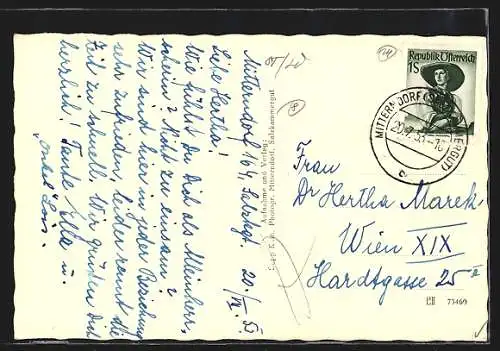 Mitterndorf 164, Salzkgt. 20/VII. 53.
Liebe Hertha!
Wie fühlst Du Dich als Alleinherr,
schein? Nicht zu einsam?
Wir sind hier in jeder Beziehung
sehr zufrieden, leider rennt die
Zeit zu schnell. Wir grüßen Dich
herzlich! Tante Ella u.
Onkel Lois.
Aufnahme und Verlag:
Phot. Mitterndorf, Salzkammergut
Republik Österreich
1S
MITTERNDORF (SALZKAMMERGUT)
20.7.53
Frau
Dr Hertha Marek
Wien XIX
Hardtgasse 25
73469